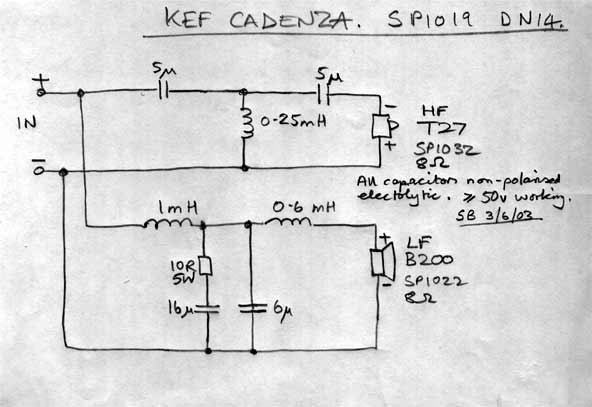 KEF CADENZA. SP1019 DN14.
5μ
5μ
+
IN
-
0·25mH
-
HF
T27
+
SP1032
8Ω
All capacitors non-polarised
electolytic. ≥ 50v working.
SB 3/6/03
1mH
0·6 mH
+
LF
B200
-
SP1022
8Ω
10R
5W
16μ
6μ